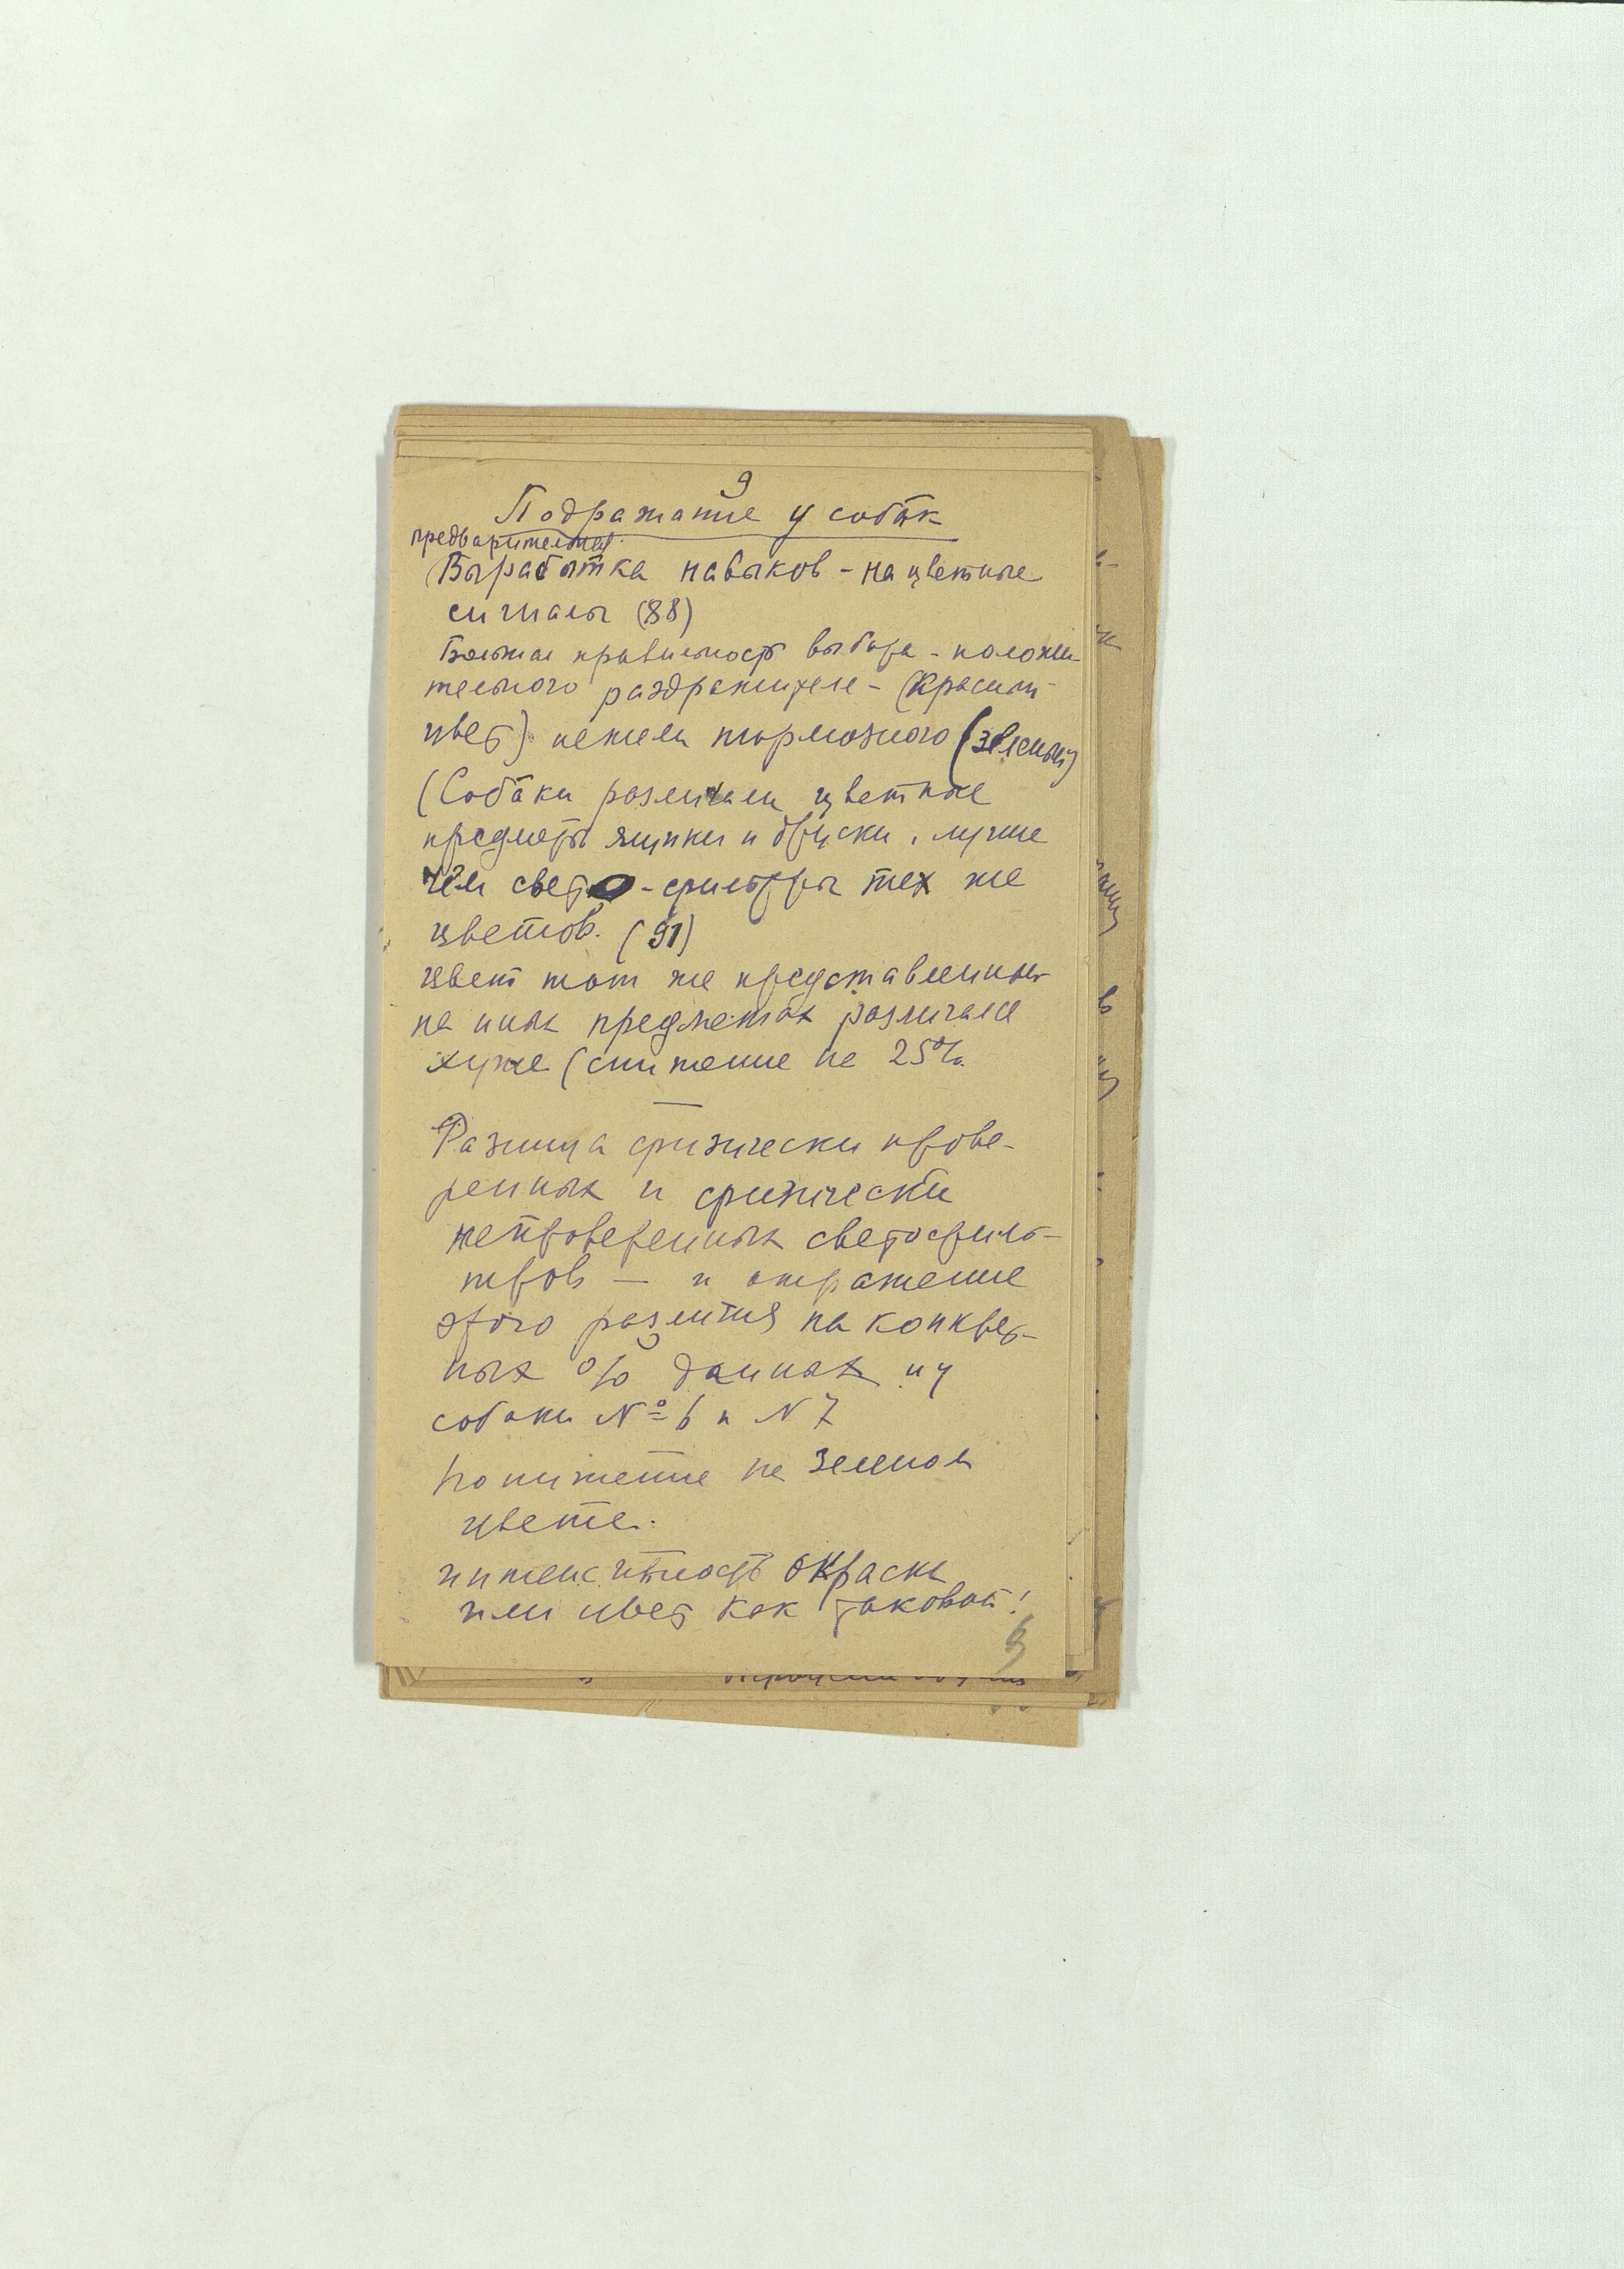 9
Подражание у собак
предварительная
Выработка навыков - на цветные
сигналы (88)
Большая правильность выбора - положи-
тельного раздражителя - (красный
цвет) нежели тормозного (зеленый)
(Собаки различали цветные
предметы ящики и бруски, лучше
чем свето-фильтры тех же
цветов. (91)
цвет тот же представленный
на иных предметах различался
хуже (снижение на 25%
—
Разница физически прове-
ренных и физически
непроверенных светофиль-
тров — и отражение
этого различия на конкрет-
ных % данных и у
собаки № 6 и N 7
Понижение на зеленом
цвете.
интенсивность окраски
или цвет как таковой!